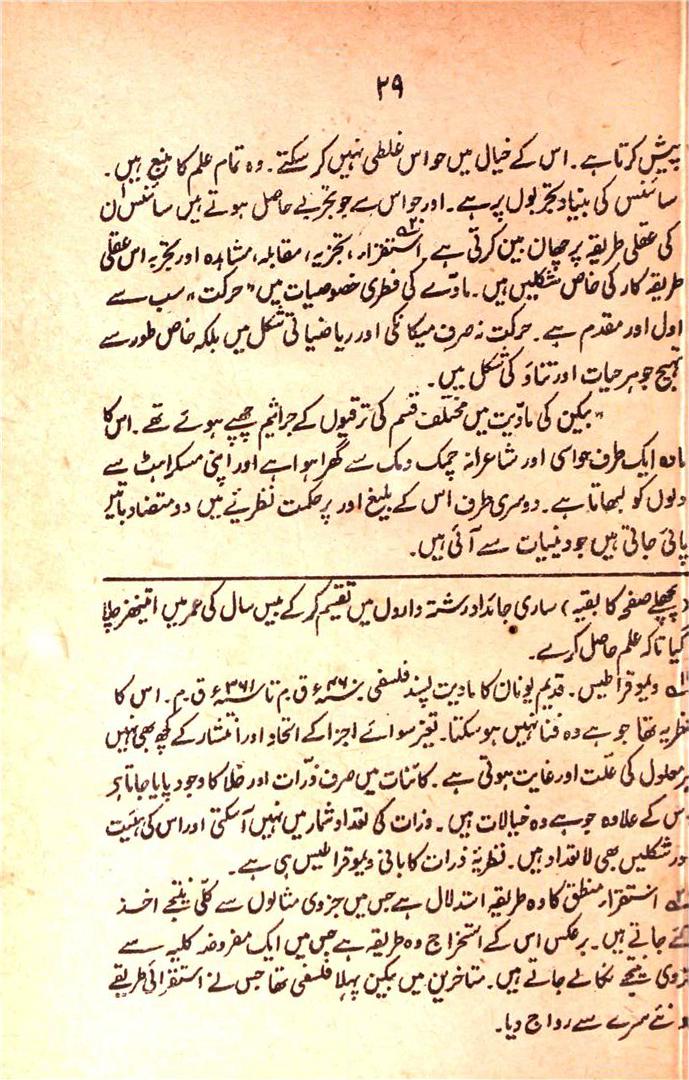 ۲۹
پیش کرتا ہے۔ اس کے خیال میں حواس غلطی نہیں کر سکتے۔ وہ تمام علم کا منبع ہیں۔
سائنس کی بنیاد تجربوں پر ہے۔ اور حواس سے جو تجربے حاصل ہوتے ہیں سائنس ان
کی عقلی طریقہ پر چھان بین کرتی ہے۔ استقرار ۲؎، تجزیہ، مقابلہ، مشاہدہ اور تجربہ اس عقلی
طریقہ کار کی خاص شکلیں ہیں۔ مادّے کی فطری خصوصیات میں "حرکت" سب سے
اول اور مقدم ہے۔ حرکت نہ صرف میکانکی اور ریاضیاتی شکل میں بلکہ خاص طور سے
تہیج جوہر حیات اور تناؤ کی شکل میں۔
"بیکن کی مادّیت میں مختلف قسم کی ترقیوں کے جراثیم چھپے ہوئے تھے۔ اس کا
مادہ ایک طرف حواسی اور شاعرانہ چمک دمک سے گھرا ہوا ہے اور اپنی مسکراہٹ سے
دلوں کو لبھاتا ہے۔ دوسری طرف اس کے بلیغ اور پر حکمت نظریئے میں دو متضاد باتیں
پائی جاتی ہیں جو دینیات سے آئی ہیں۔
(پچھلے صفحے کا بقیہ) ساری جائداد رشتہ داروں میں تقسیم کر کے بیس سال کی عمر میں ایتھنز چلا
گیا تاکہ علم حاصل کرے۔
۱؎ دیموقراطیس۔ قدیم یونان کا مادیت پسند فلسفی ۴۶۰ء ق۔م تا ۳۶۱ء ق۔م۔ اس کا
نظریہ تھا جو ہے وہ فنا نہیں ہو سکتا۔ تغیر سوائے اجزا کے اتحاد اور انتشار کے کچھ بھی نہیں
ہر معلول کی علّت اور غایت ہوتی ہے۔ کائنات میں صرف ذرّات اور خلا کا وجود پایا جاتا ہے
اس کے علاوہ جو ہے وہ خیالات ہیں۔ ذرات کی تعداد شمار میں نہیں آسکتی اور اس کی ہئیت
اور شکلیں بھی لاتعداد ہیں۔ نظریۂ ذرات کا بانی دیموقراطیس ہی ہے۔
۲؎ استقرار منطق کا وہ طریقہ استدلال ہے جس میں جزوی مثالوں سے کلّی نتیجے اخذ
کئے جاتے ہیں۔ برعکس اس کے استخراج وہ طریقہ ہے جس میں ایک مفروضہ کلیہ سے
جزوی نتیجے نکالے جاتے ہیں۔ متاخرین میں بیکن پہلا فلسفی تھا جس نے استقرائی طریقے
کو نئے سرے سے رواج دیا۔